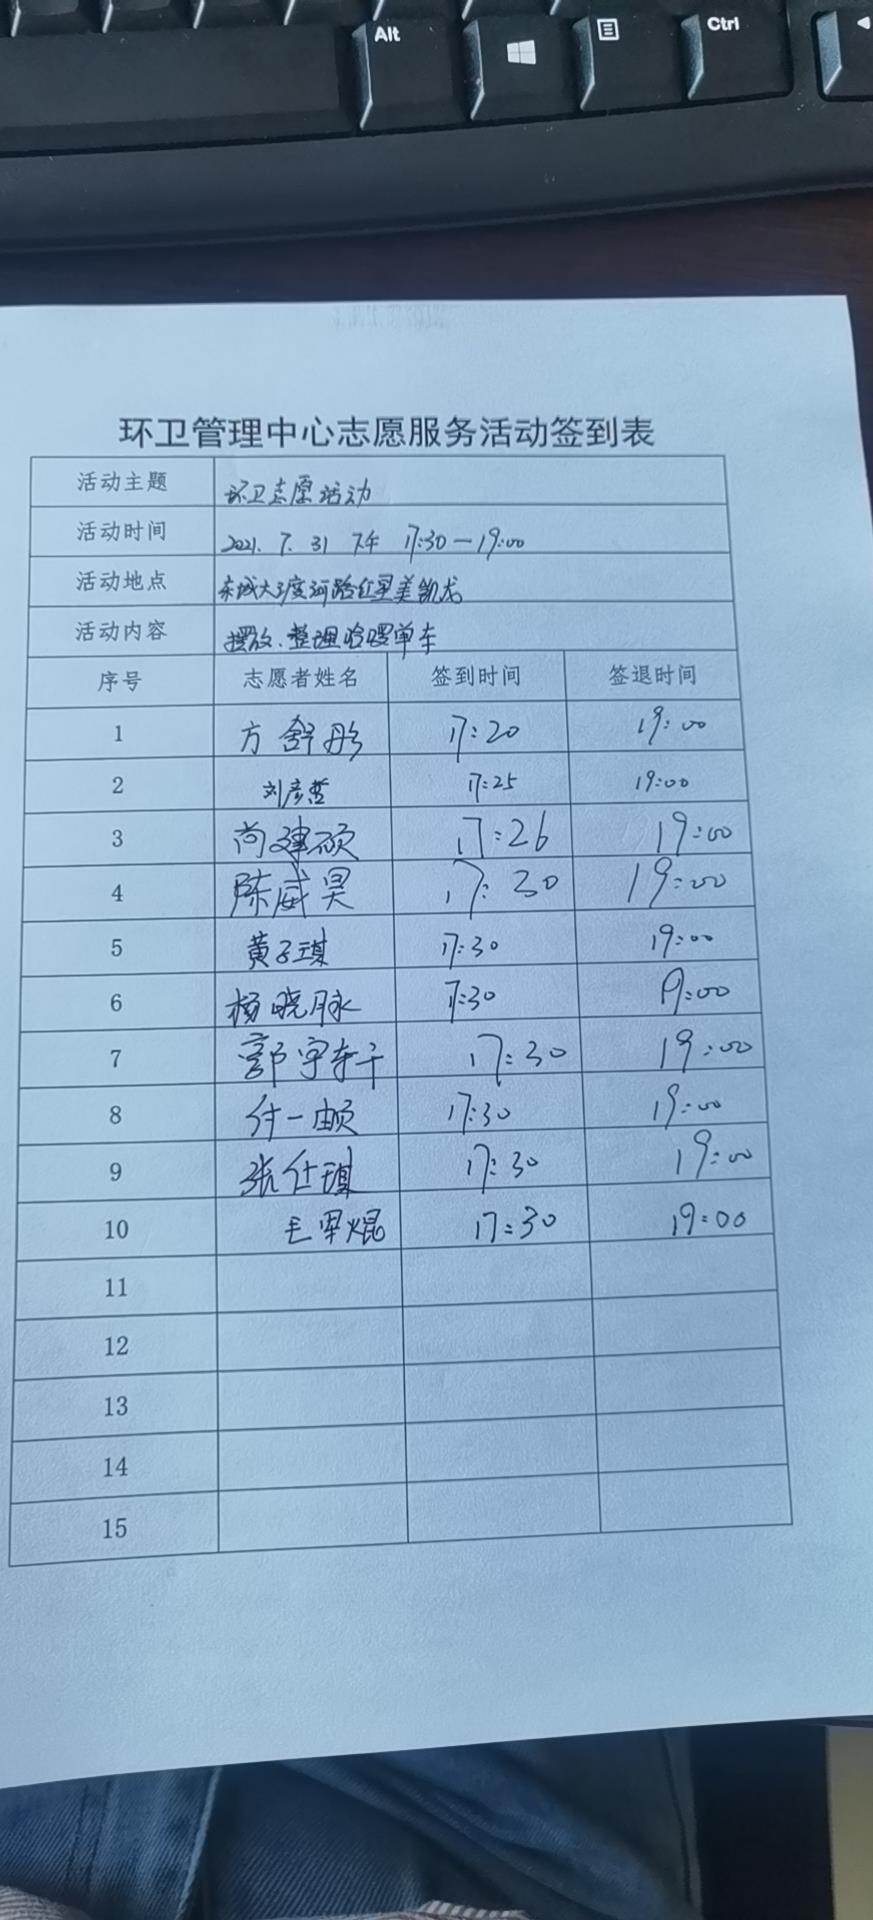 Alt
Ctrl
环卫管理中心志愿服务活动签到表
活动主题 环卫志愿活动
活动时间 2021. 7. 31 下午 17:30—19:00
活动地点 东城大渡河路红星美凯龙
活动内容 摆放、整理哈啰单车
序号 志愿者姓名 签到时间 签退时间
1 方舒彤 17:20 19:00
2 刘彦哲 17:25 19:00
3 尚建硕 17:26 19:00
4 陈威昊 17:30 19:00
5 黄子琪 17:30 19:00
6 杨晓脉 17:30 19:00
7 郭宇轩 17:30 19:00
8 付一 17:30 19:00
9 张仕琪 17:30 19:00
10 毛罕焜 17:30 19:00
11
12
13
14
15